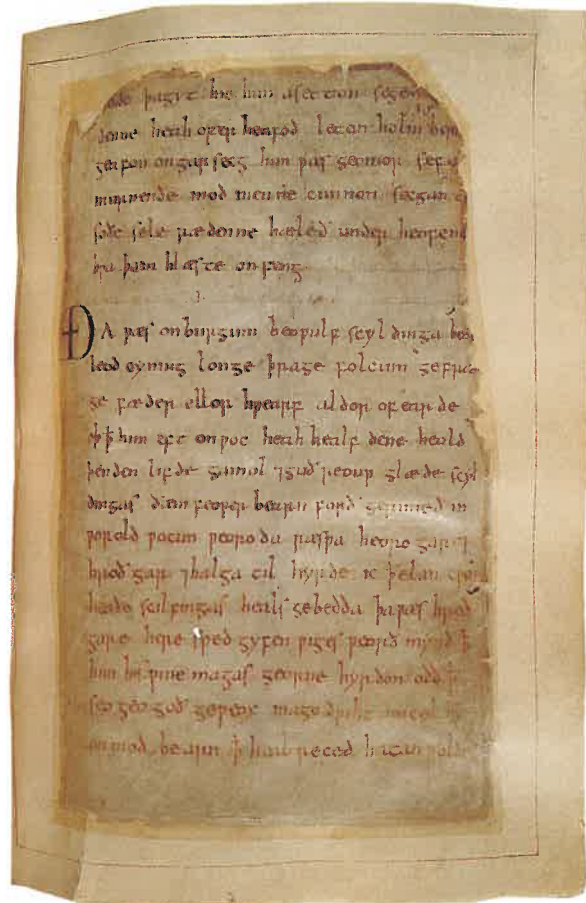 þagyt hie him asetton segen
denne heah ofer heafod leton holm ber
geafon on garsecg him ƿæs geomor sefa
murnende mod men ne cunnon secgan
soðe sele rædenne hæleð under heofen
hƿa þæm hlæste onfeng
ÐA ƿæs on burgum beoƿulf scyldinga leof
leod cyning longe þrage folcum gefræ
ge fæder ellor hƿearf aldor of earde
oþ ꝥ him eft onƿoc heah healfdene heold
þenden lifde gamol ⁊ guð reouƿ glæde scyl
dingas ðæm feoƿer bearn forð gerimed in
ƿorold ƿocun ƿeoroda ræsƿa heorogar ⁊
hroðgar ⁊ halga til hyrde ic ꝥ elan cƿen
heaðo scilfingas heals gebedda þa ƿæs hroð
gare here sped gyfen ƿiges ƿeorð mynd ꝥ
him his ƿine magas georne hyrdon oðð ꝥ
seo geogoð geƿeox mago driht micel
on mod bearn ꝥ healreced hatan ƿolde